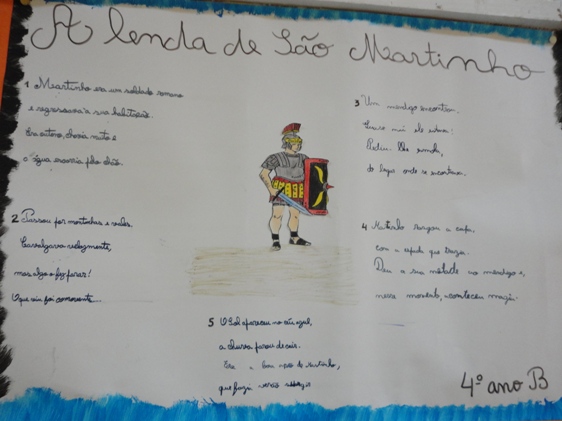 A lenda de São Martinho
1 Martinho era um soldado romano
e regressava a sua habitação.
Era outono, chovia muito e
a água escorria pelo chão.
2 Passou por montanhas e vales.
Cavalgava velozmente,
mas algo o fez parar!
O que viu foi comovente...
3 Um mendigo encontrou.
ele estava:
Pediu-lhe esmola,
do lugar onde se encontrava.
4 Martinho rasgou a capa.
Com a espada que trazia.
Deu a sua metade ao mendigo e,
nesse momento, aconteceu magia.
5 O Sol apareceu no céu azul,
a chuva parou de cair.
Era o bom de Martinho,
que fazia verão
4º ano B